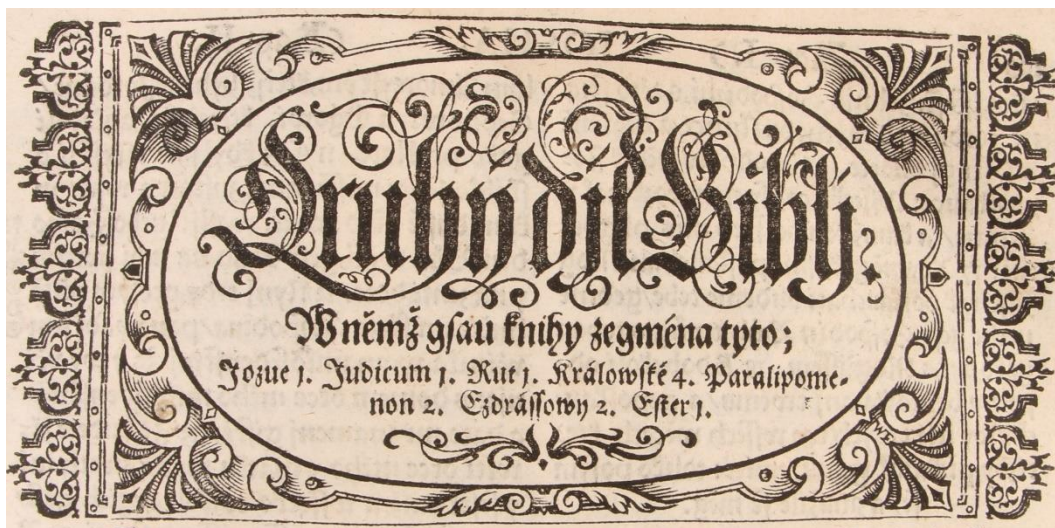 Druhý djl Biblj.
W němž gsau knihy zegména tyto;
Jozue 1. Judicum 1. Rut 1. Králowské 4. Paralipome-
non 2. Ezdrássowy 2. Ester 1.